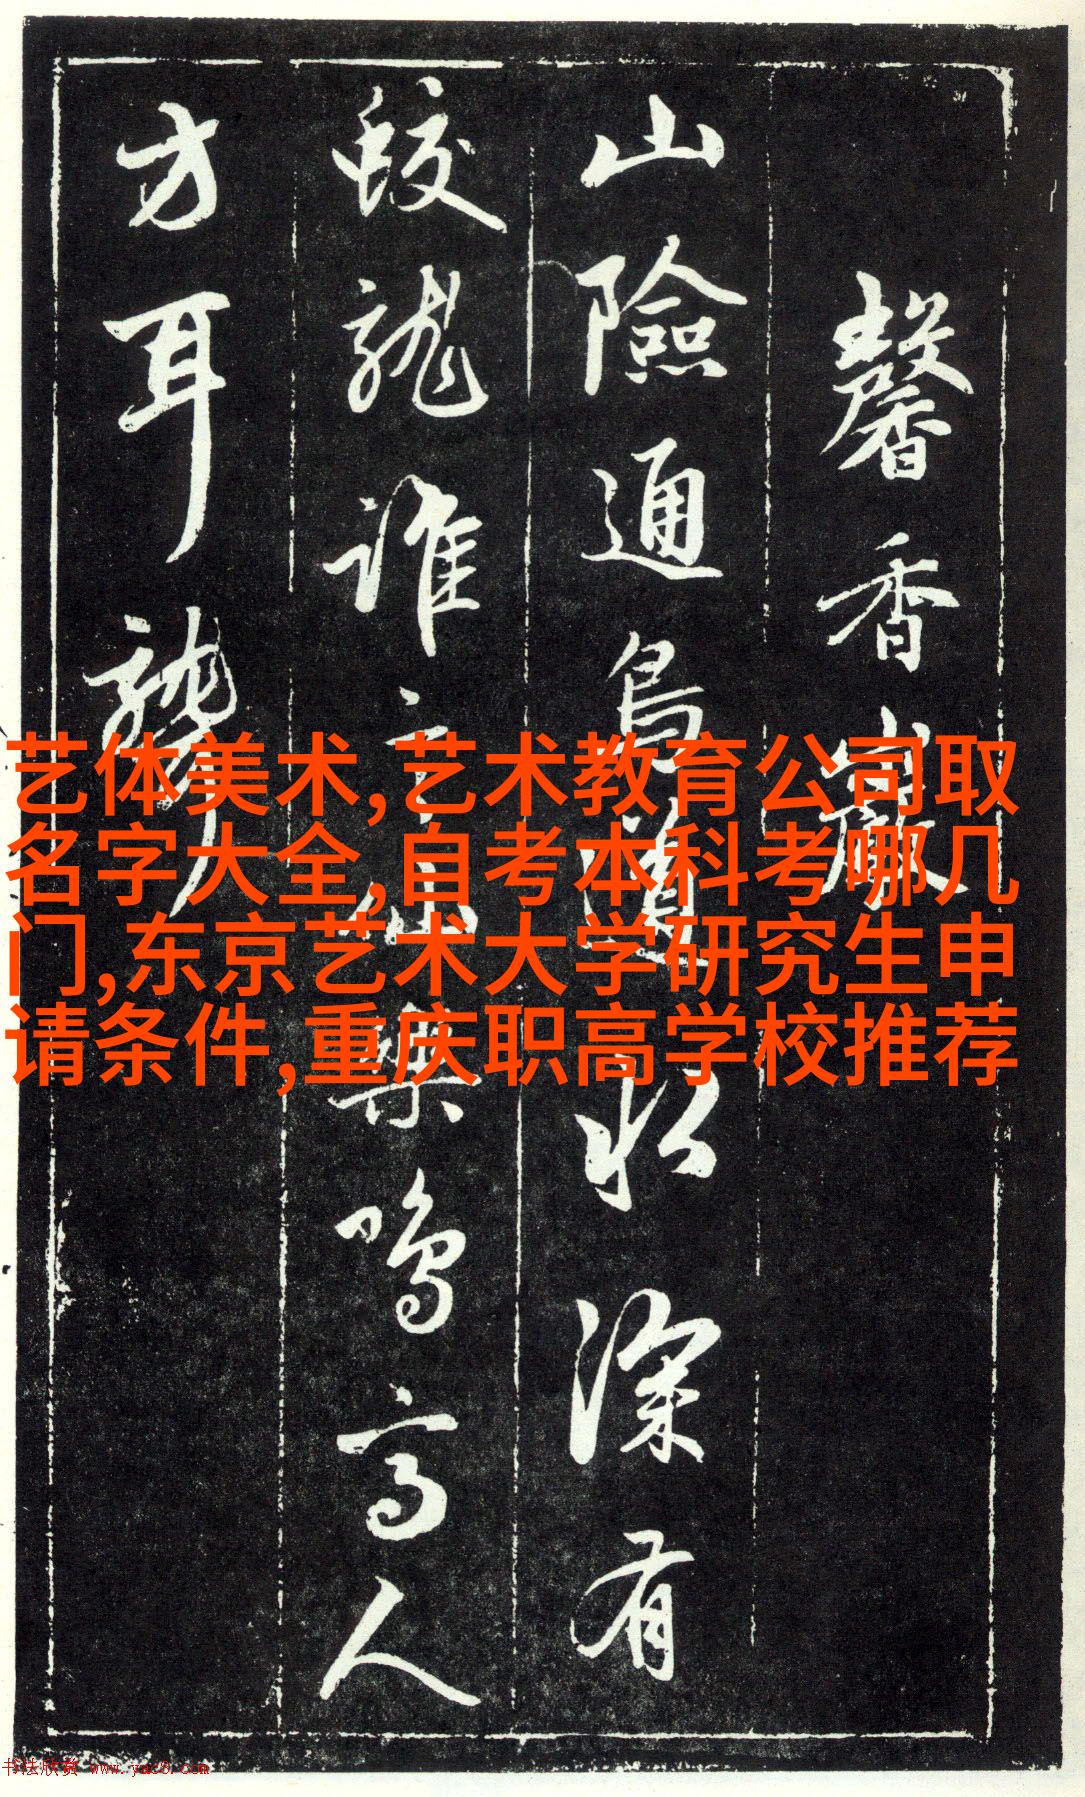 馨香山巖
山險通鳥道水深有
蛟龍誰言仙樂鳴高人
方耳聾
艺体美术,艺术教育公司取
名字大全,自考本科考哪几
门,东京艺术大学研究生申
请条件,重庆职高学校推荐
书法欣赏 www.yac8.com